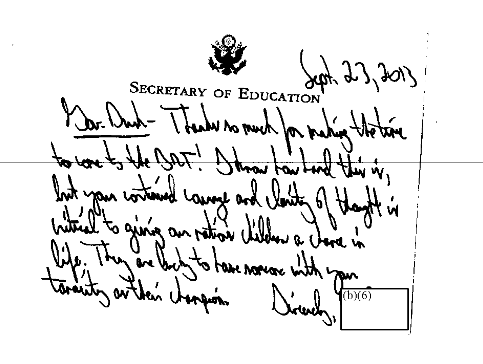 Sept. 23, 2013
SECRETARY OF EDUCATION
Thanks so much for making the time
to come to the ! I know how hard this is,
but your continued courage and clarity of thought is
critical to giving our nation's children a chance in
life. They are lucky to have someone with your
tenacity as their champion.
Sincerely,
(b)(6)